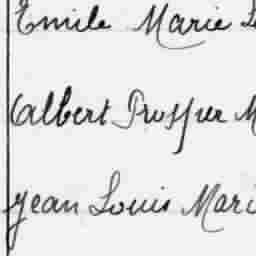 Emile Marie
Albert Prosper M
Jean Louis Mari